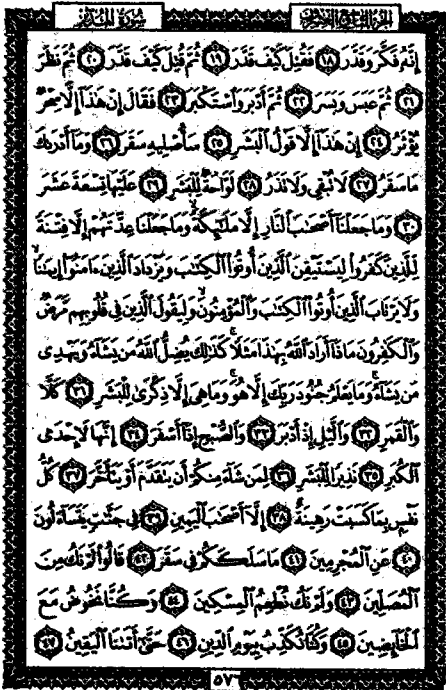 سُورَةُ المُدَّثِّر الجزء التاسع والعشرون
إِنَّهُۥ فَكَّرَ وَقَدَّرَ ١٨ فَقُتِلَ كَيْفَ قَدَّرَ ١٩ ثُمَّ قُتِلَ كَيْفَ قَدَّرَ ٢٠ ثُمَّ نَظَرَ
٢١ ثُمَّ عَبَسَ وَبَسَرَ ٢٢ ثُمَّ أَدْبَرَ وَٱسْتَكْبَرَ ٢٣ فَقَالَ إِنْ هَٰذَآ إِلَّا سِحْرٌ
يُؤْثَرُ ٢٤ إِنْ هَٰذَآ إِلَّا قَوْلُ ٱلْبَشَرِ ٢٥ سَأُصْلِيهِ سَقَرَ ٢٦ وَمَآ أَدْرَىٰكَ
مَا سَقَرُ ٢٧ لَا تُبْقِى وَلَا تَذَرُ ٢٨ لَوَّاحَةٌ لِّلْبَشَرِ ٢٩ عَلَيْهَا تِسْعَةَ عَشَرَ
٣٠ وَمَا جَعَلْنَآ أَصْحَٰبَ ٱلنَّارِ إِلَّا مَلَٰٓئِكَةً وَمَا جَعَلْنَا عِدَّتَهُمْ إِلَّا فِتْنَةً
لِّلَّذِينَ كَفَرُوا۟ لِيَسْتَيْقِنَ ٱلَّذِينَ أُوتُوا۟ ٱلْكِتَٰبَ وَيَزْدَادَ ٱلَّذِينَ ءَامَنُوٓا۟ إِيمَٰنًا
وَلَا يَرْتَابَ ٱلَّذِينَ أُوتُوا۟ ٱلْكِتَٰبَ وَٱلْمُؤْمِنُونَ وَلِيَقُولَ ٱلَّذِينَ فِى قُلُوبِهِم مَّرَضٌ
وَٱلْكَٰفِرُونَ مَاذَآ أَرَادَ ٱللَّهُ بِهَٰذَا مَثَلًا كَذَٰلِكَ يُضِلُّ ٱللَّهُ مَن يَشَآءُ وَيَهْدِى
مَن يَشَآءُ وَمَا يَعْلَمُ جُنُودَ رَبِّكَ إِلَّا هُوَ وَمَا هِىَ إِلَّا ذِكْرَىٰ لِلْبَشَرِ ٣١ كَلَّا
وَٱلْقَمَرِ ٣٢ وَٱلَّيْلِ إِذْ أَدْبَرَ ٣٣ وَٱلصُّبْحِ إِذَآ أَسْفَرَ ٣٤ إِنَّهَا لَإِحْدَى
ٱلْكُبَرِ ٣٥ نَذِيرًا لِّلْبَشَرِ ٣٦ لِمَن شَآءَ مِنكُمْ أَن يَتَقَدَّمَ أَوْ يَتَأَخَّرَ ٣٧ كُلُّ
نَفْسٍۭ بِمَا كَسَبَتْ رَهِينَةٌ ٣٨ إِلَّآ أَصْحَٰبَ ٱلْيَمِينِ ٣٩ فِى جَنَّٰتٍ يَتَسَآءَلُونَ
٤٠ عَنِ ٱلْمُجْرِمِينَ ٤١ مَا سَلَكَكُمْ فِى سَقَرَ ٤٢ قَالُوا۟ لَمْ نَكُ مِنَ
ٱلْمُصَلِّينَ ٤٣ وَلَمْ نَكُ نُطْعِمُ ٱلْمِسْكِينَ ٤٤ وَكُنَّا نَخُوضُ مَعَ
ٱلْخَآئِضِينَ ٤٥ وَكُنَّا نُكَذِّبُ بِيَوْمِ ٱلدِّينِ ٤٦ حَتَّىٰٓ أَتَىٰنَا ٱلْيَقِينُ ٤٧
٥٧٦